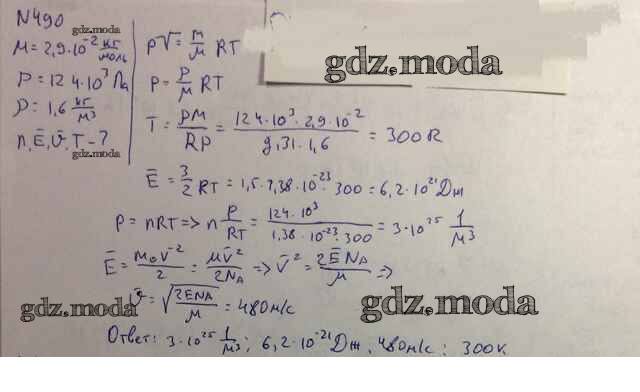 N490
gdz.moda
M = 2,9·10⁻² кг/моль
P = 124·10³ Па
ρ = 1,6 кг/м³
n, E̅, v̅, T - ?
gdz.moda
pV = m/μ RT
gdz.moda
P = ρ/μ RT
T = pM/Rρ = 124·10³·2,9·10⁻²/8,31·1,6 = 300K
E̅ = 3/2 RT = 1,5·1,38·10⁻²³·300 = 6,2·10⁻²¹ Дж
P = nRT => n P/RT = 124·10³/1,38·10⁻²³·300 = 3·10²⁵ 1/м³
E̅ = m₀v̅²/2 = μv̅²/2Nₐ => v̅² = 2E̅Nₐ/μ =>
v̅ = √(2ENA/μ) = 480м/с
gdz.moda
gdz.moda
Ответ: 3·10²⁵ 1/м³; 6,2·10⁻²¹ Дж, 480м/с; 300K